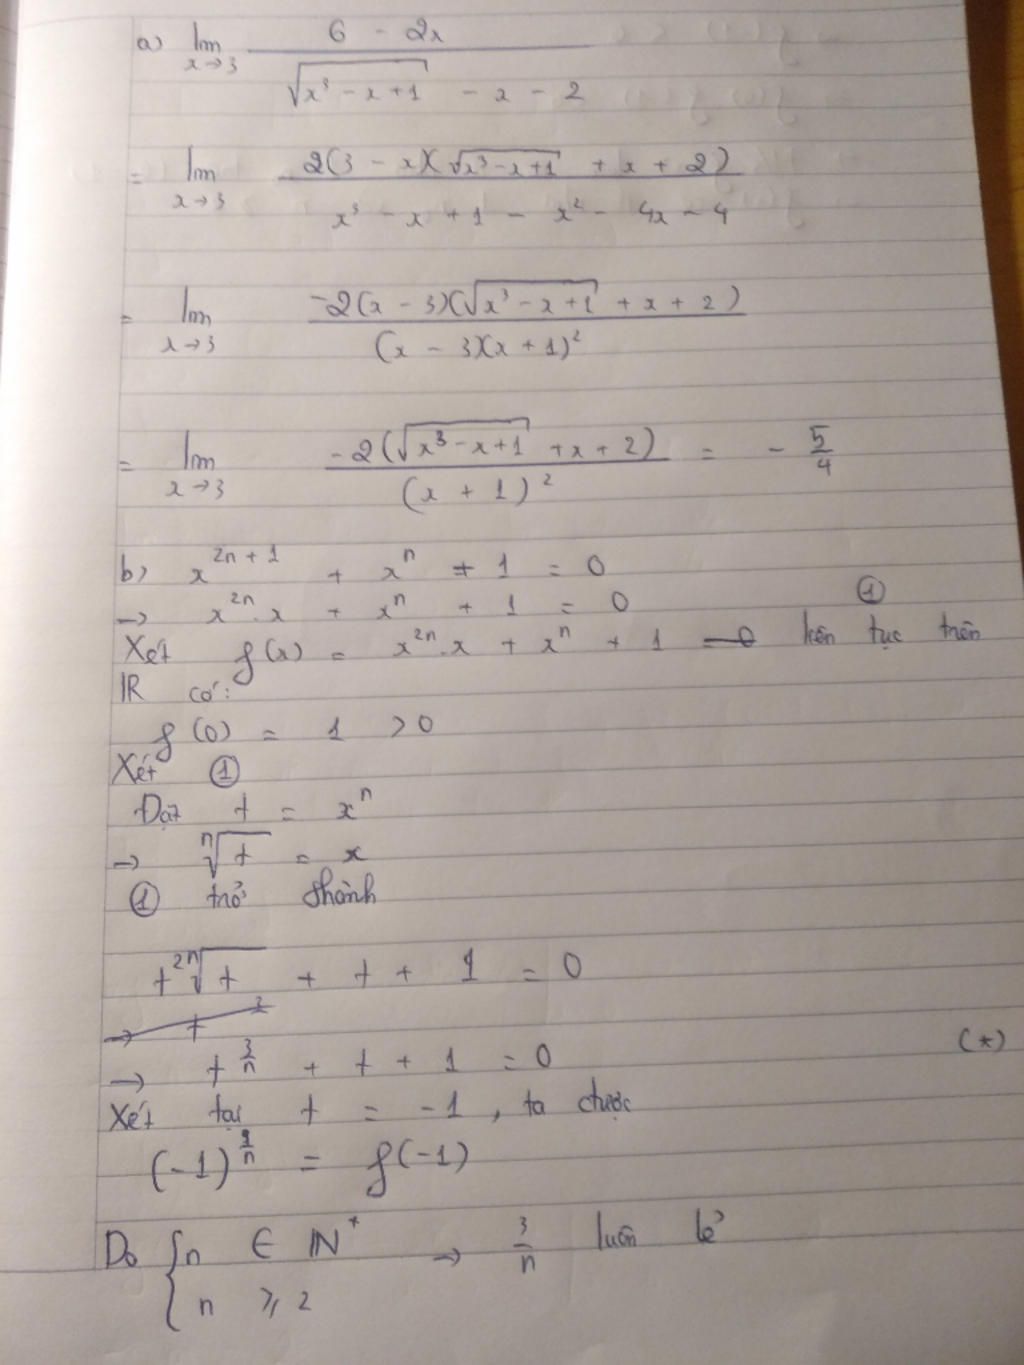 a) lim x→3 (6 - 2x) / (√(x³ - x + 1) - x - 2)
= lim x→3 2(3 - x)(√(x³ - x + 1) + x + 2) / (x³ - x + 1 - x² - 4x - 4)
= lim x→3 -2(x - 3)(√(x³ - x + 1) + x + 2) / ((x - 3)(x + 1)²)
= lim x→3 -2(√(x³ - x + 1) + x + 2) / (x + 1)² = - 5/4
b) x^(2n + 1) + x^n + 1 = 0
→ x^(2n).x + x^n + 1 = 0 ①
Xét f(x) = x^(2n).x + x^n + 1 = 0 liên tục trên
IR có:
f(0) = 1 > 0
Xét ①
Đặt t = x^n
→ ⁿ√t = x
① trở thành
t² ⁿ√t + t + 1 = 0
→ t^(3/n) + t + 1 = 0 (*)
Xét tại t = -1, ta được
(-1)^(3/n) = f(-1)
Do { n ∈ IN* → 3/n luôn lẻ
n ⩾ 2